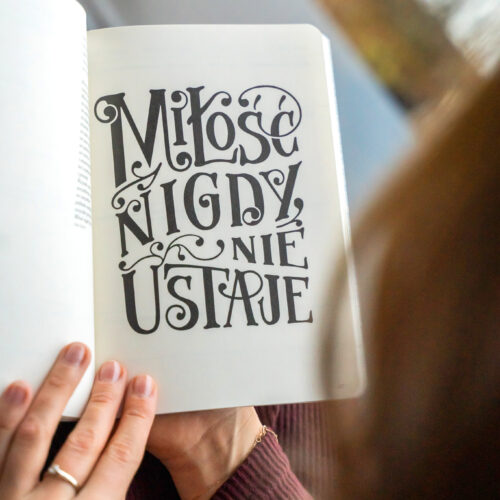 Miłość
Nigdy
Nie
Ustaje